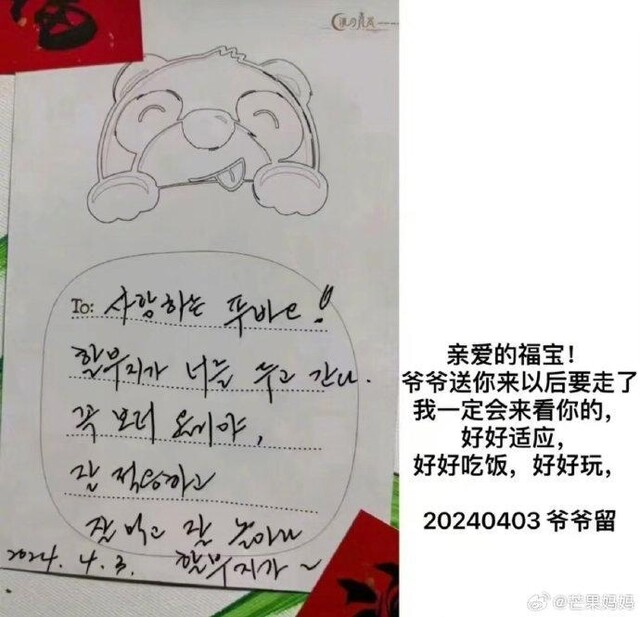 To: 사랑하는 푸바오!
할부지가 너를 두고 간다.
꼭 보러 올거야,
잘 적응하고
잘 먹고 잘 놀아라
2024. 4. 3. 할부지가~
亲爱的福宝！
爷爷送你来以后要走了
我一定会来看你的，
好好适应，
好好吃饭，好好玩，
20240403 爷爷留
@芒果妈妈